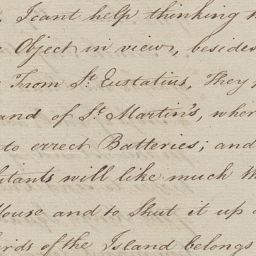 . I cant help thinking
Object in view, besides
From St. Eustatius, They
and of St. Martin's, wher
to errect Batteries; and
bitants will like much th
House and to Shut it up
irds of the Island belongs